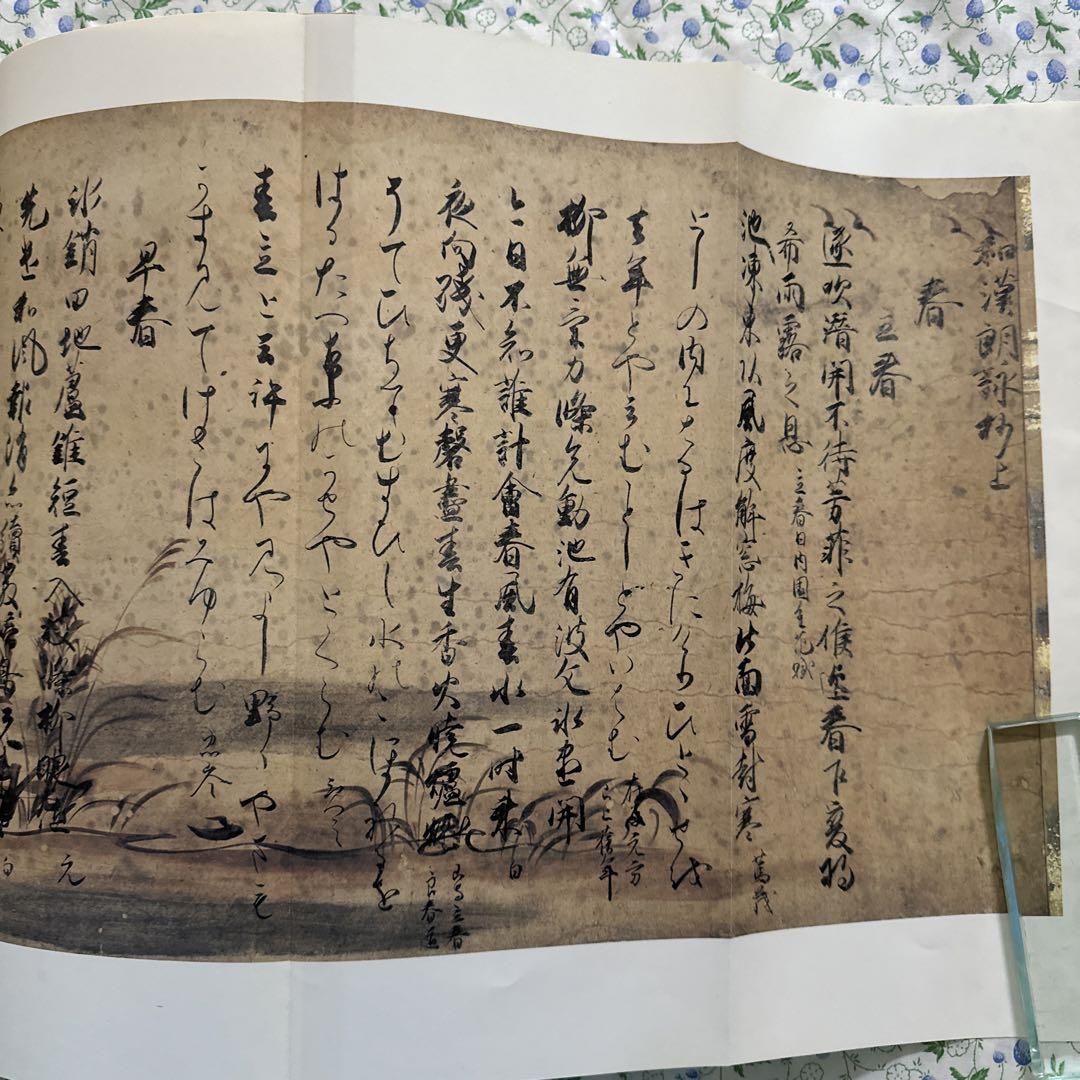 和漢朗詠抄上
春
立春
逐吹潜開不待芳菲之候迎春乍変将
希雨露之恩 立春日内園進花賦
池凍東頭風度解窓梅北面雪封寒 篤茂
としの内にはるはきにけりひとゝせを
去年とや云むことしとやいはむ 在原元方
柳無気力條先動池有波文氷盡開
今日不知誰計會春風春水一時来 白
夜向残更寒磬盡春生香火暁爐燃 山寺立春 良春道
そてひちてむすひし水のこほれるを
はるたつけふのかせやとくらむ 貫之
春立と云許にやみよしの野ゝやまも
かすみてけさはみゆらむ 忠岑
早春
氷銷田地蘆錐短春入枝條柳眼低 元
先遣和風報消息續教啼鳥 白